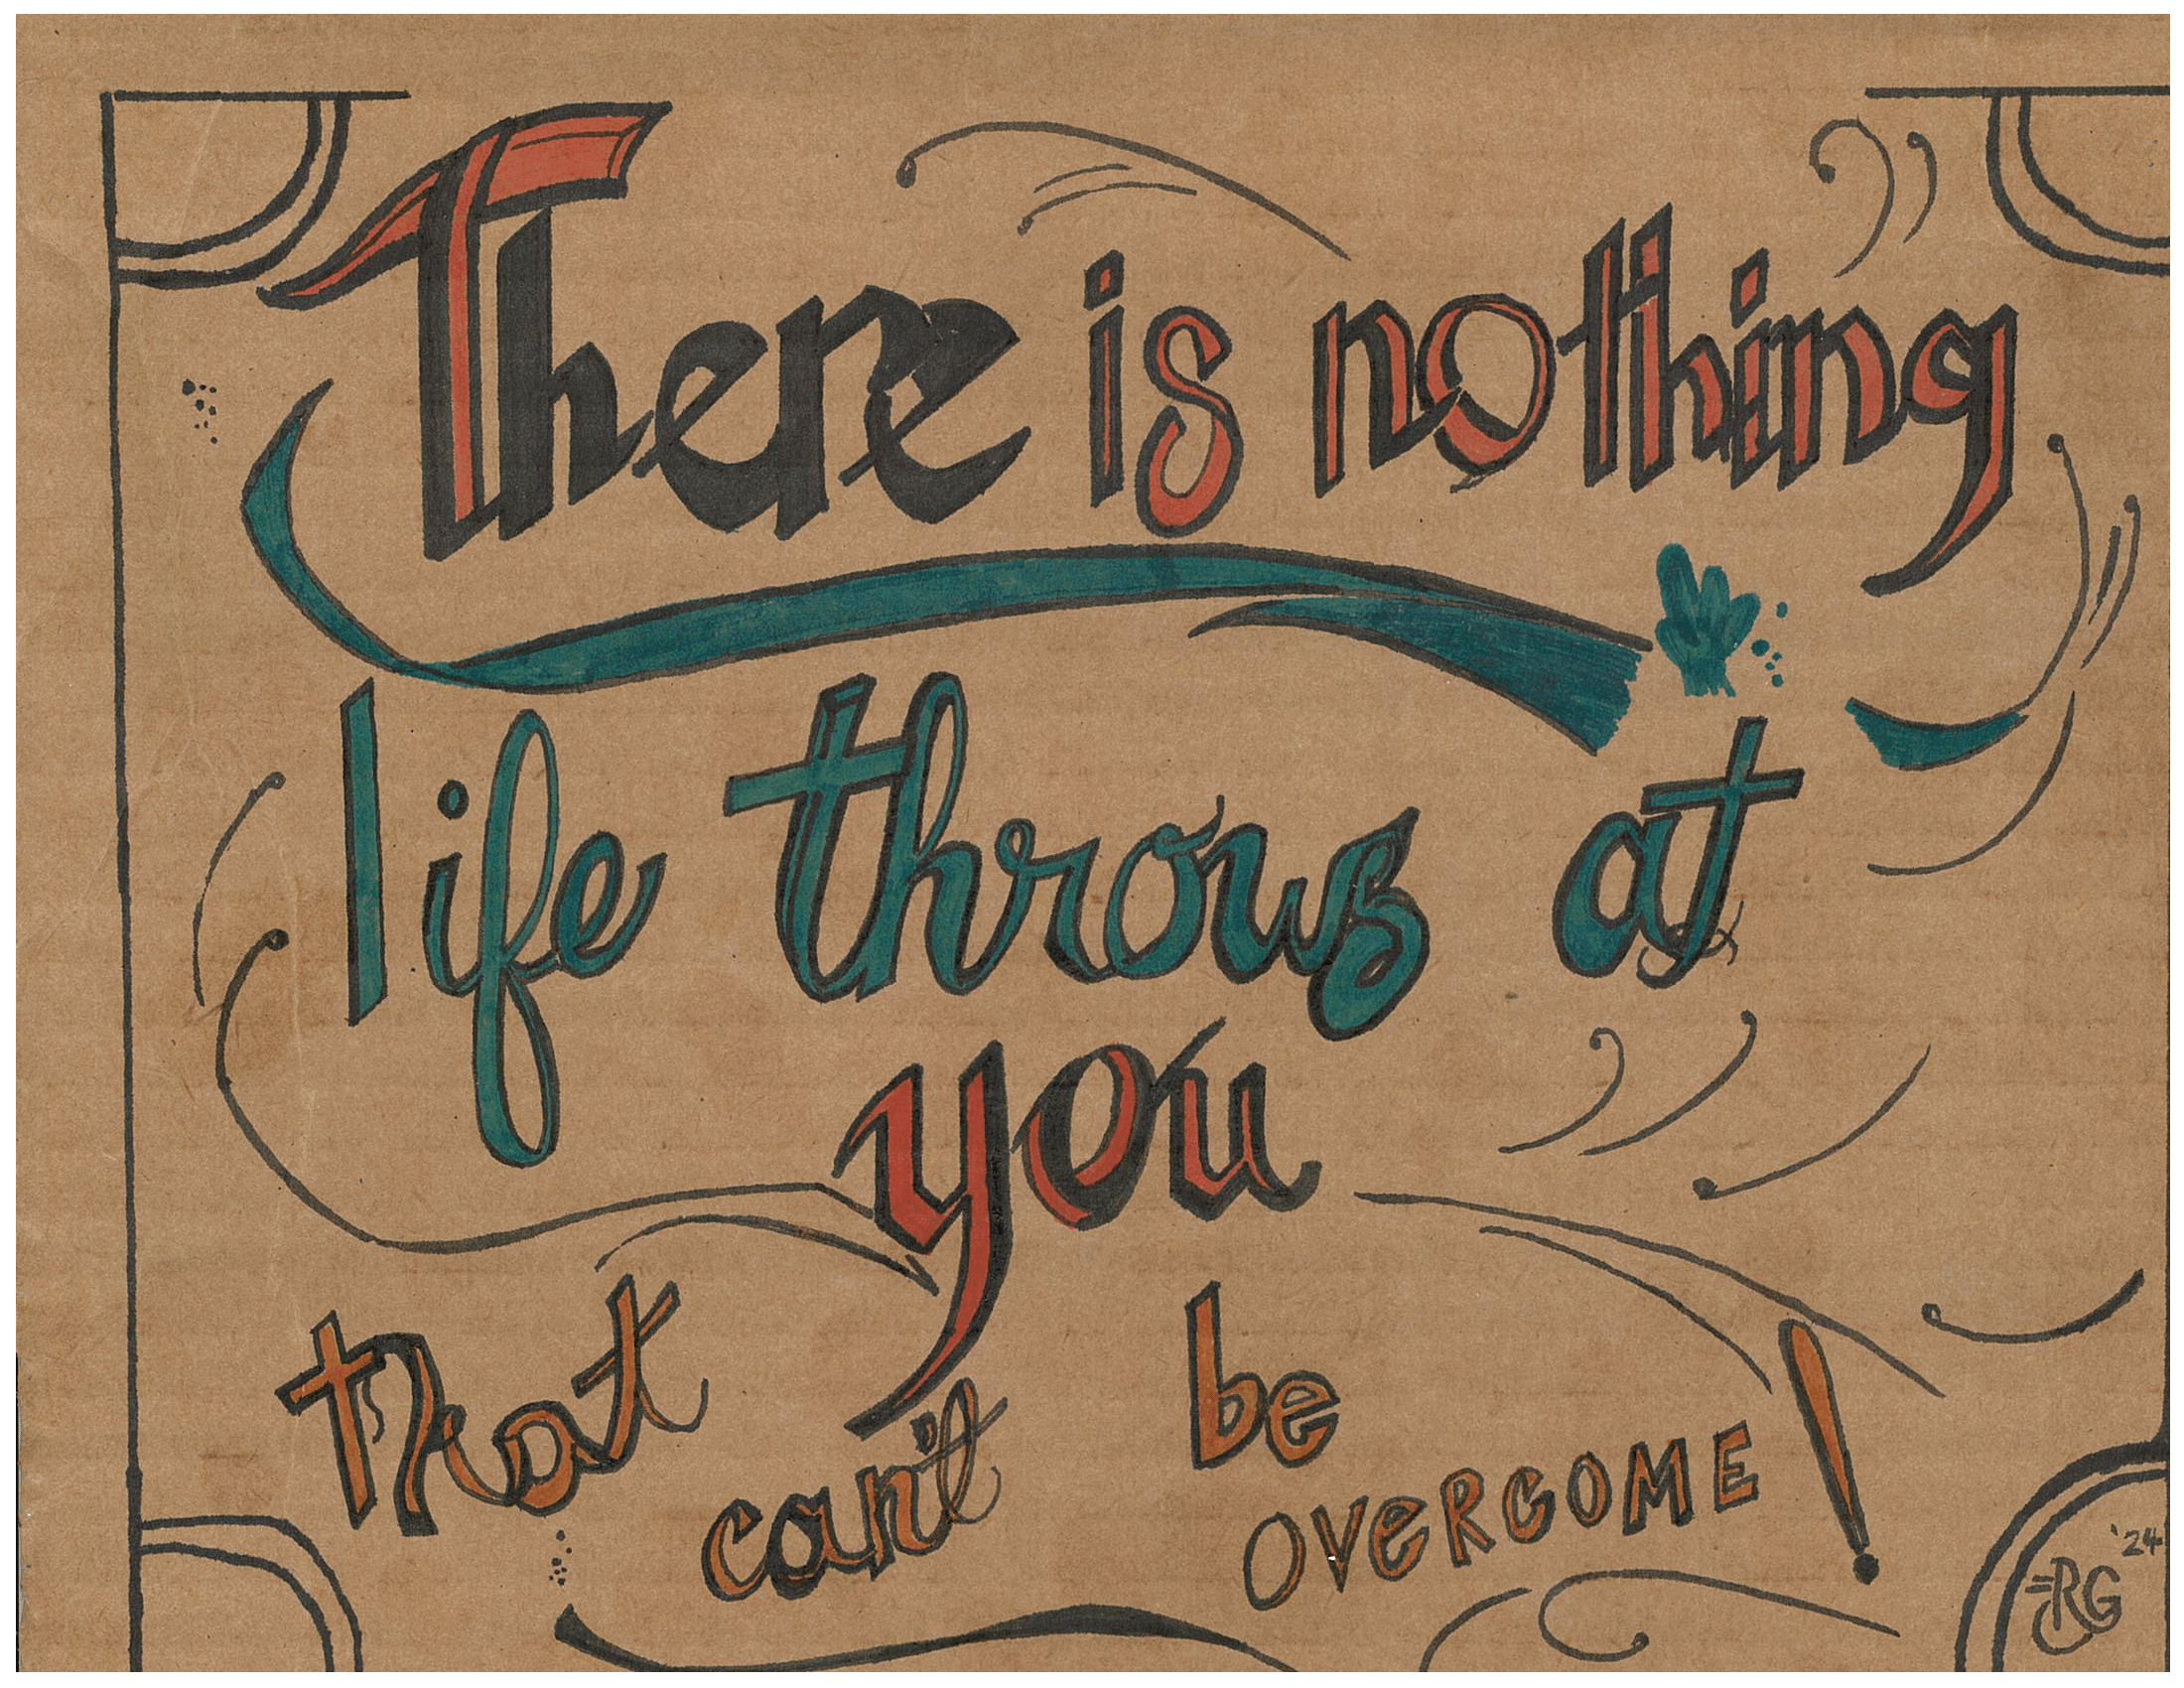 There is nothing
life throws at
you
that can't be
OVERCOME!
'24
RG